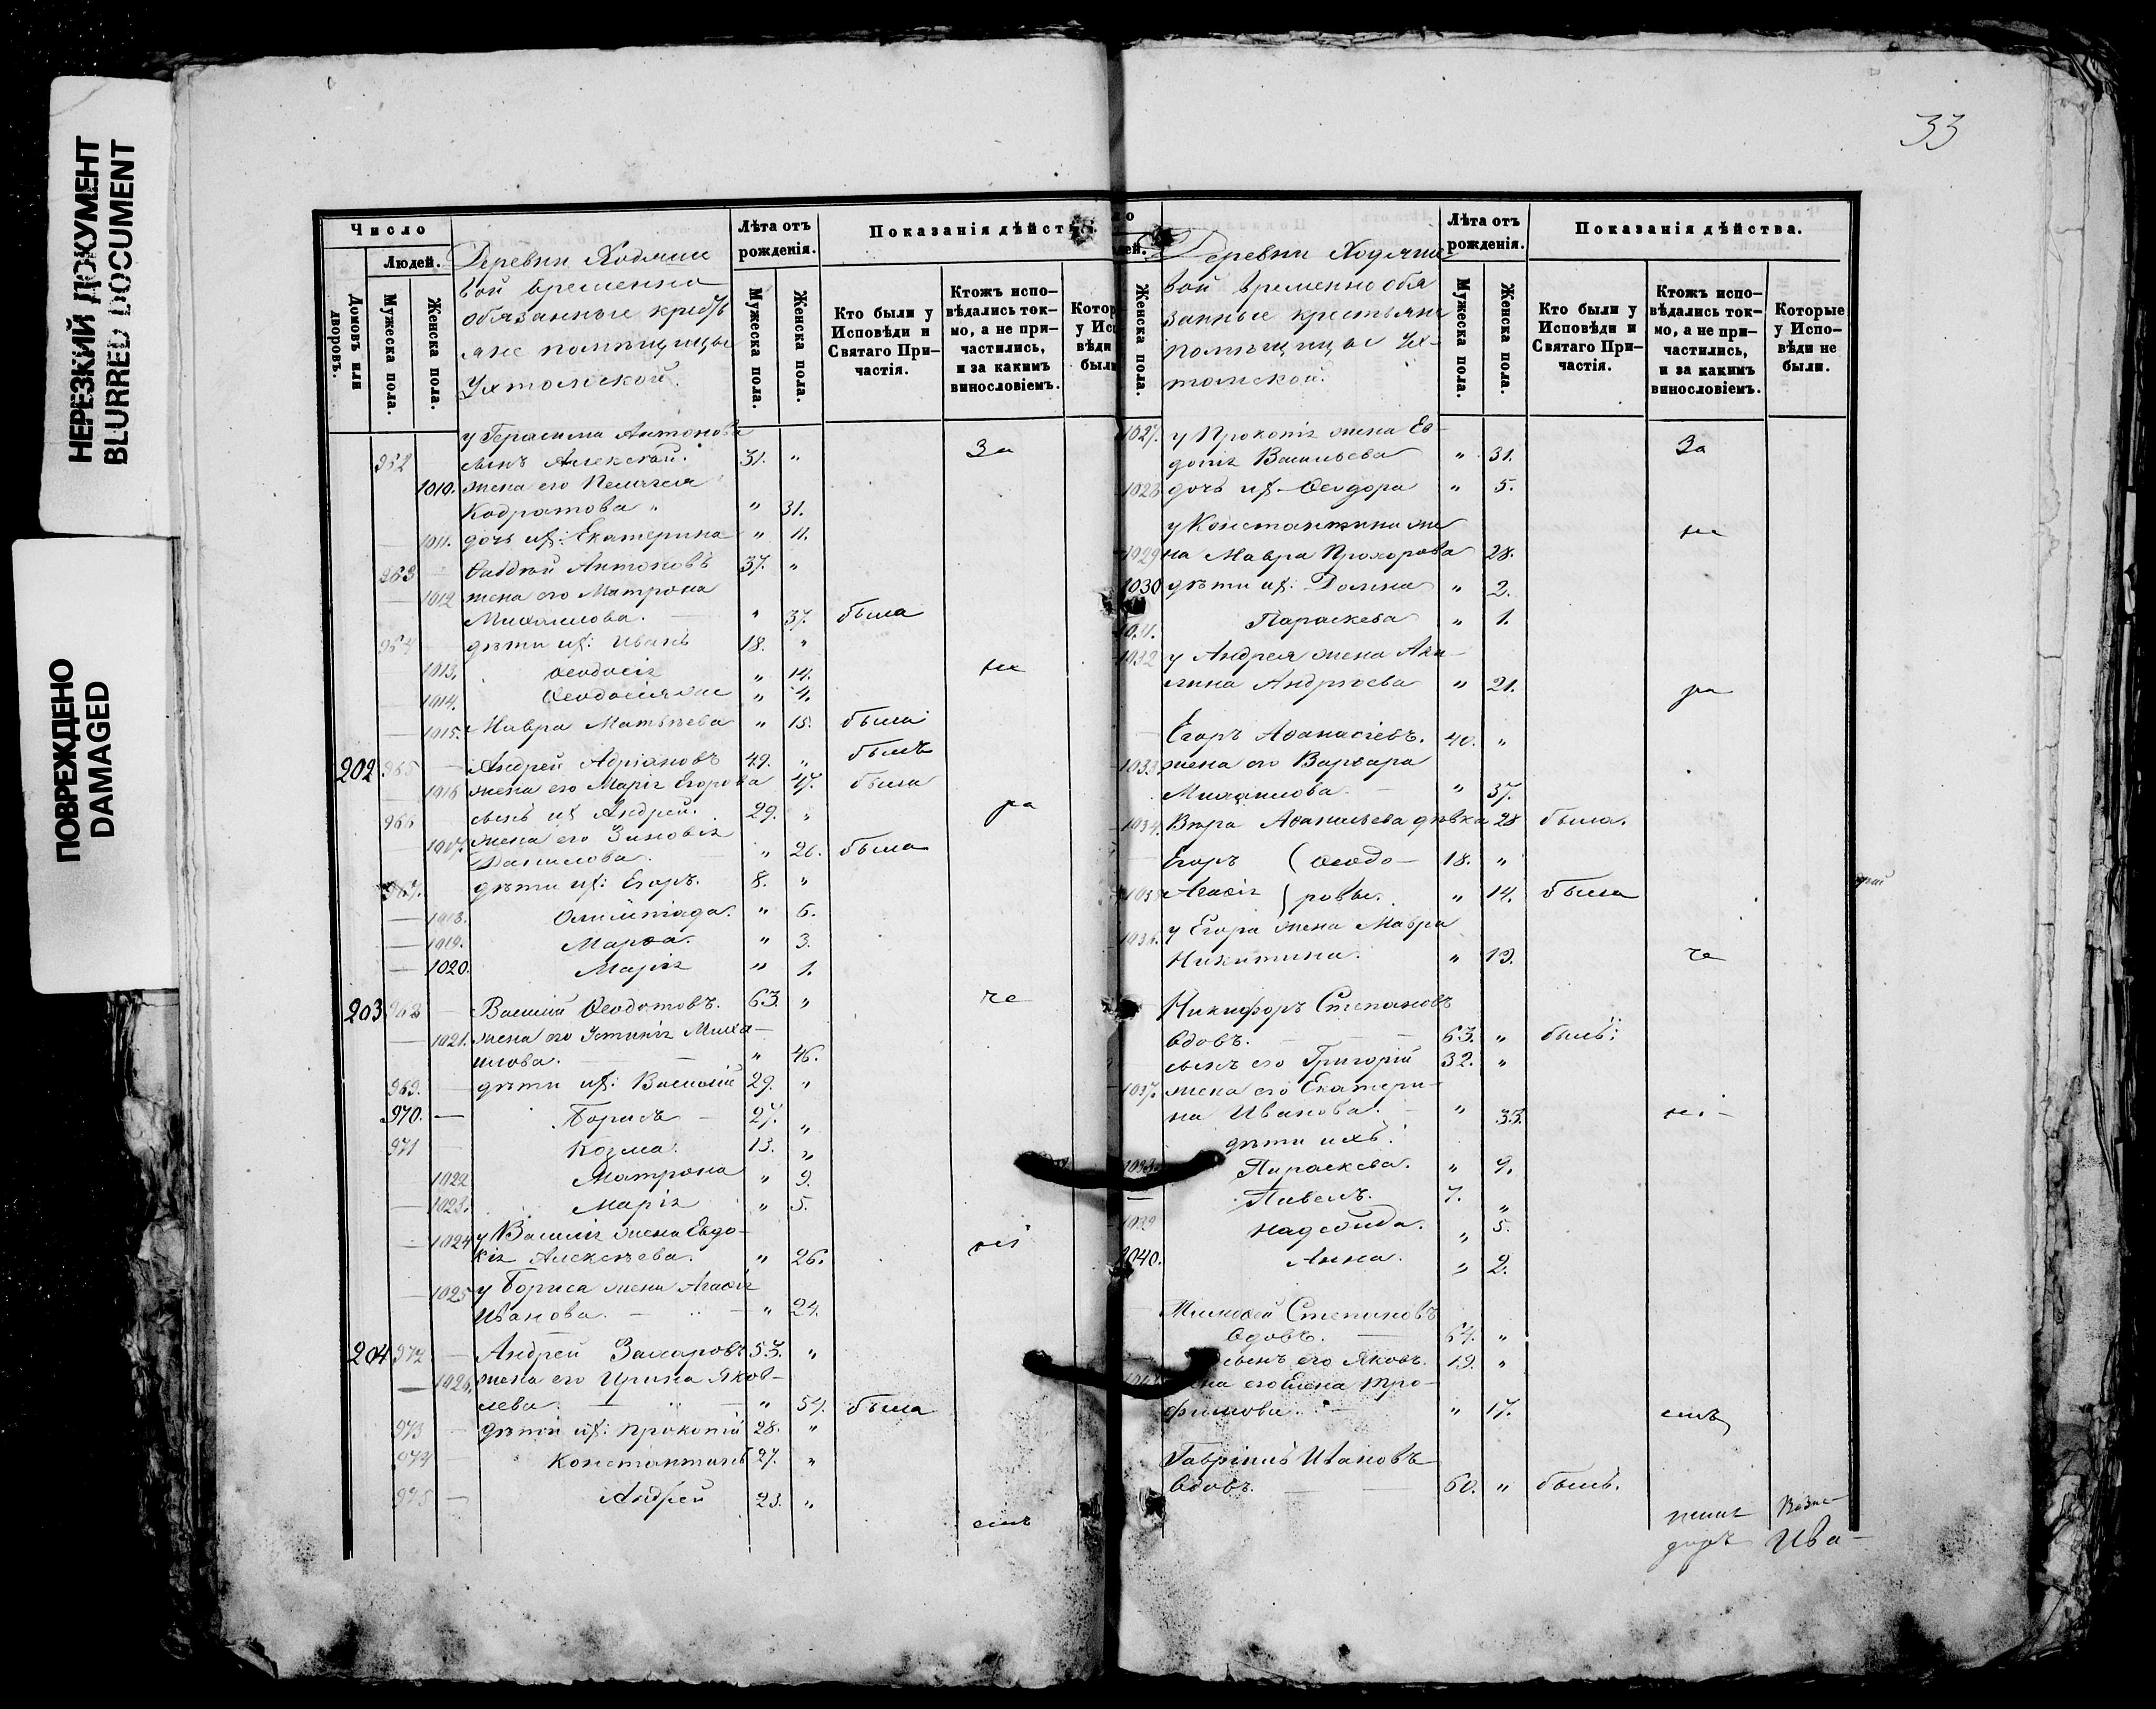 НЕРЕЗКИЙ ДОКУМЕНТ
BLURRED DOCUMENT
ПОВРЕЖДЕНО
DAMAGED
Число
Людей.
Домовъ или дворовъ.
Мужеска пола.
Женска пола.
Деревни Ходяши
вой временно
обязанные кресть
яне помѣщицы
Ухтомской.
Лѣта отъ
рожденія.
Мужеска пола.
Женска пола.
Показанія дѣйст
Кто были у
Исповѣди и
Святаго При-
частія.
Ктожъ испо-
вѣдались ток-
мо, а не при-
частились,
и за какимъ
винословіемъ.
Котор
у Исп
вѣди
были
у Герасима Антонова
962 сынъ Алексѣй. 31. „ За
1010. жена его Пелагея
Кодратова „ „ 31.
1011. дочь их: Екатерина „ 11.
963 Антоновъ 37. „
1012 жена его Матрона
Михаилова. „ 37. была
964 дѣти их: Иванъ 18. „
1013. Ѳеодосія „ 14. не
1014. Ѳеодосія „ 4.
1015. Мавра Матвѣева „ 15. была
202. 965 Андрей Адріановъ 49. „ былъ
1016 жена его Марія Егорова 47. была
966 сынъ их Андрей. 29. „ ра
1017. жена его Зиновія
Данилова. „ 26. была
967. дѣти их: Егоръ. 8. „
1018. Олимпіада. „ 6.
1019. Марѳа. „ 3.
1020. Марія „ 1.
203 968 Василій Ѳеодотовъ. 63. „ че
1021. жена его Устинія Миха-
илова. „ 46.
969. дѣти их: Василій 29. „
970. Борисъ 27. „
971 Козма. 13. „
1022 Матрона „ 9.
1023. Марія „ 5.
1024 у Василія жена Евдо-
кія Алексѣева. „ 26. ні
1025 у Бориса жена Агаѳія
Иванова. „ 24.
204 972 Андрей Захаровъ 53. „
1026. жена его Ирина Яков-
лева. „ 54. была
973 дѣти их: Прокопій 28. „
974 Константинъ 27. „
975 Андрей 23. „
емъ
33
Женска пола.
Деревни Ходяши
вой временно обя
занные крестьяне
помѣщицы Ух-
томской.
Лѣта отъ
рожденія.
Мужеска пола.
Женска пола.
Показанія дѣйства.
Кто были у
Исповѣди и
Святаго При-
частія.
Ктожъ испо-
вѣдались ток-
мо, а не при-
частились,
и за какимъ
винословіемъ.
Которые
у Испо-
вѣди не
были.
1027. у Прокопія жена Ев-
докія Васильева „ 31. За
1028 дочь их Ѳеодора „ 5.
у Константина же
1029 на Мавра Прохорова 28. не
1030 дѣти их: Домна „ 2.
Параскева „ 1.
1032 у Андрея жена Аку-
лина Андрѣева „ 21. ра
Егоръ Аѳанасіевъ. 40. „
1033 жена его Варвара
Михаилова. „ 37.
1034. Вѣра Аѳанасьева дѣвка 28 была.
Егоръ ( Ѳеодо- 18. „
1035 Агаѳія ) ровы. „ 14. была
1036. у Егора жена Мавра
Никитина. „ 19. че
Никифоръ Степановъ
вдовъ. 63. „ былъ:
сынъ его Григорій 32. „
1037. жена его Екатери-
на Иванова. „ 33. ні-
дѣти ихъ.
1038 Параскева. „ 9.
Павелъ. 7. „
1039 Надежда. „ 5.
1040. Анна. „ 2.
Степановъ
вдовъ. 64. „
сынъ его Яковъ. 19. „
жена его Елена Тро-
фимова. „ 17. емъ
Гавріилъ Ивановъ
вдовъ. 60. „ былъ.
Ива-